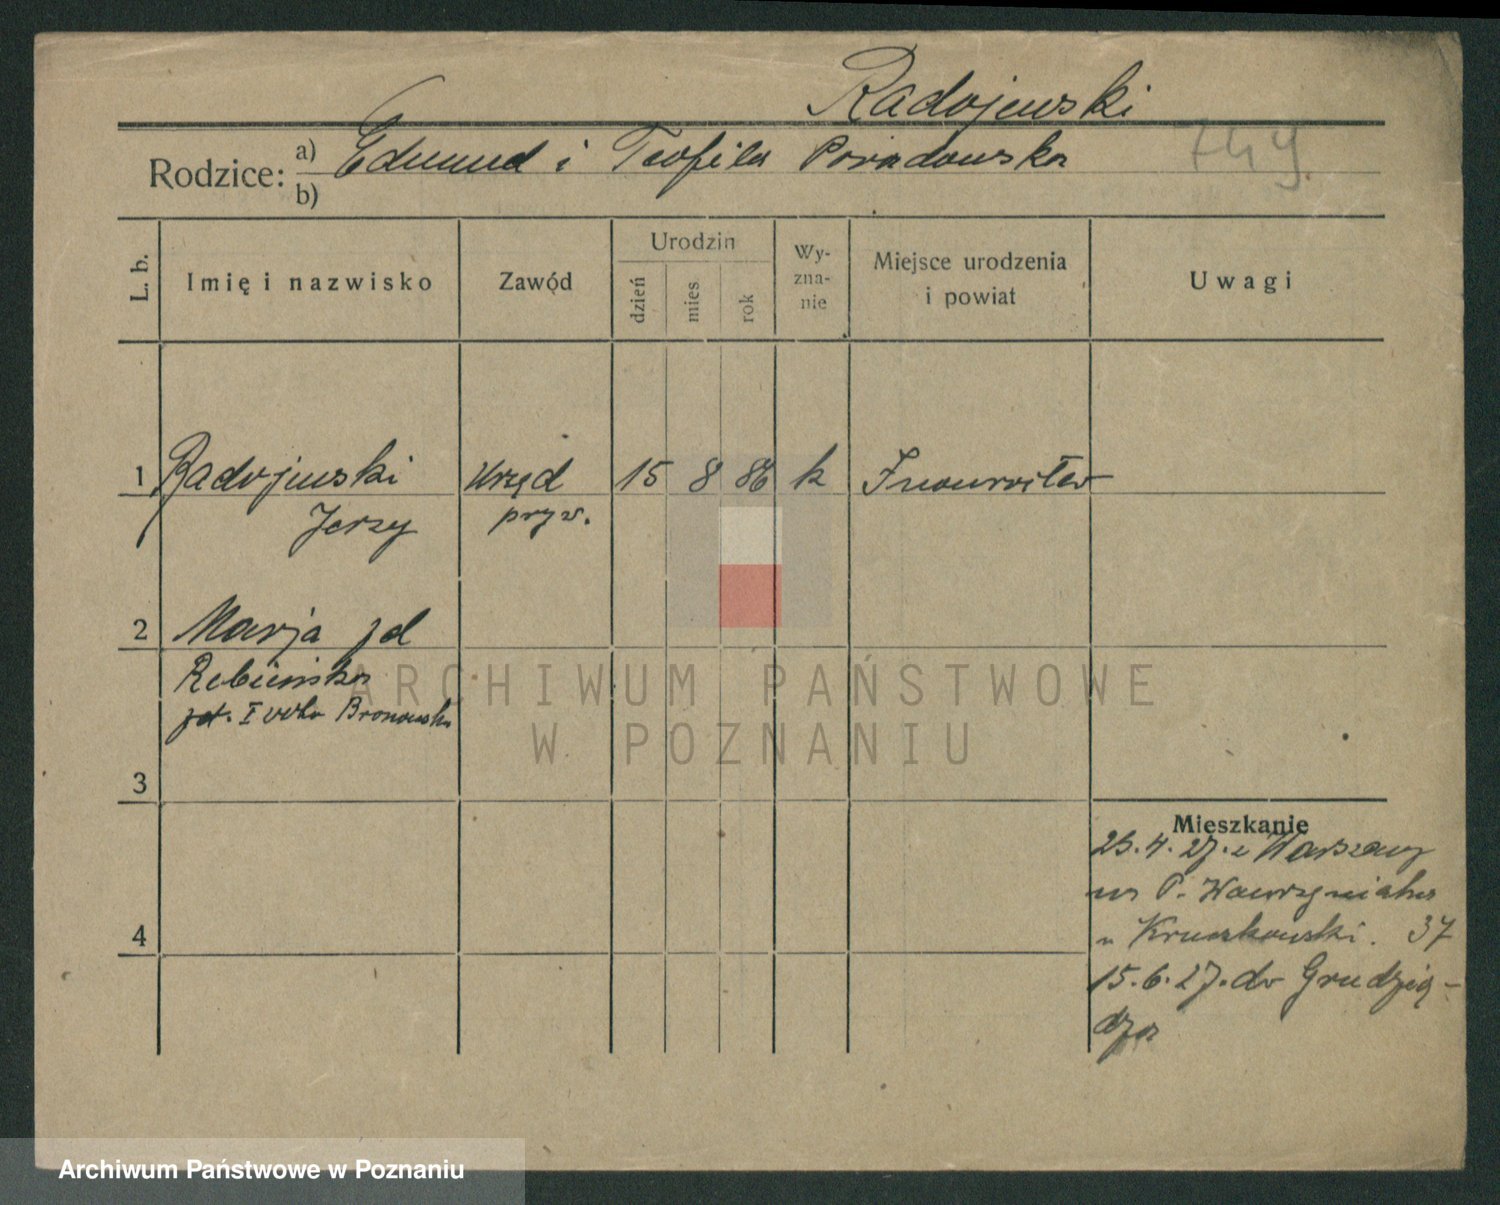 Radojewski
Rodzice: a) Edmund i Teofila Poradowska 749.
b)
L. b.
Imię i nazwisko
Zawód
Urodzin
dzień
mies.
rok
Wy-
zna-
nie
Miejsce urodzenia
i powiat
Uwagi
1 Radojewski Urzęd 15 8 86 k Inowrocław
Jerzy pryw.
2 Marja
Rebieńska
I voto Bronowska
3
Mieszkanie
4
25.4.27. z Warszawy
na P. Wawrzyniaka
u Kruszkowski. 37
15.6.27. do Grudzią-
dza
ARCHIWUM PAŃSTWOWE
W POZNANIU
Archiwum Państwowe w Poznaniu